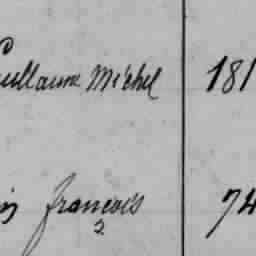 Guillaume Michel 181
françois 74